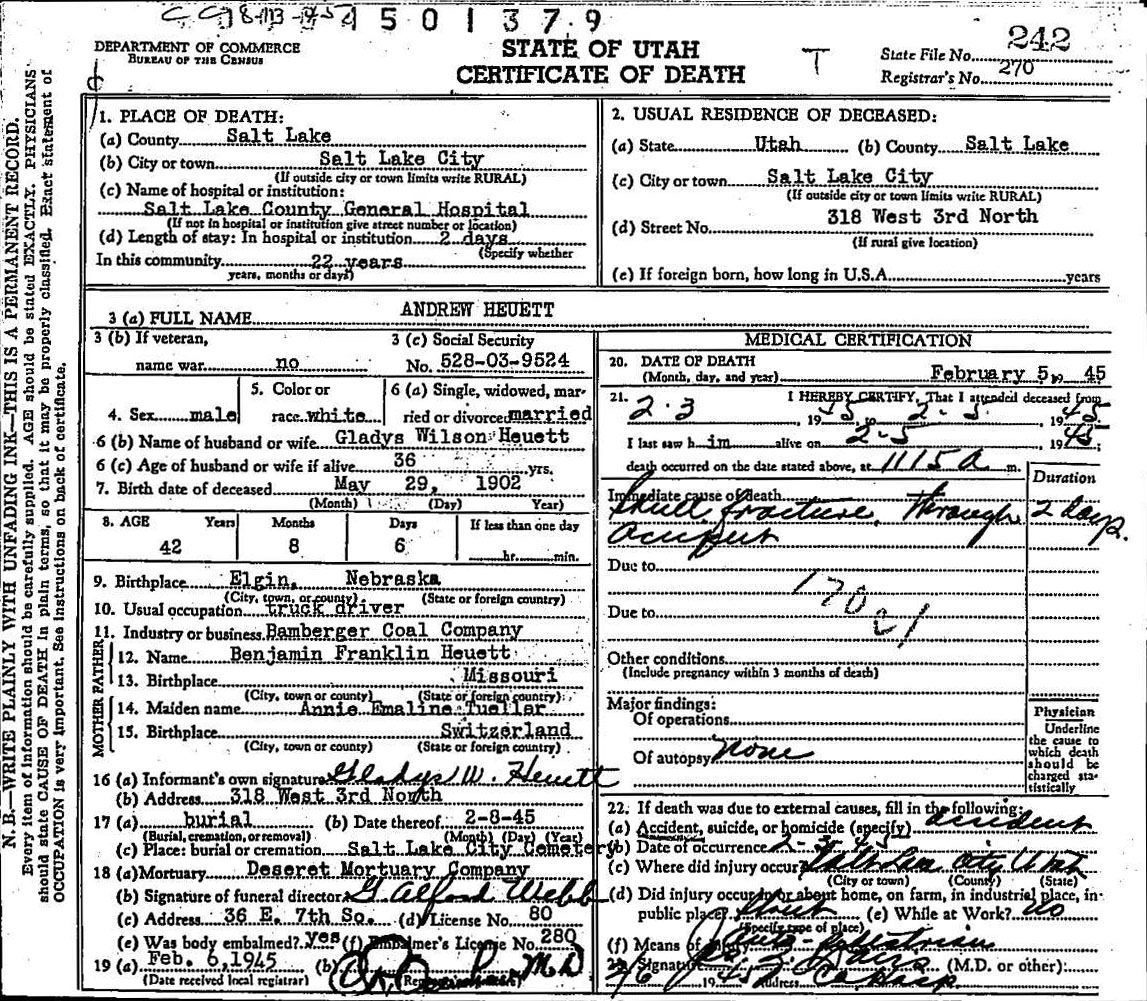 501379
DEPARTMENT OF COMMERCE
BUREAU OF THE CENSUS
STATE OF UTAH
CERTIFICATE OF DEATH
T
State File No. 242
Registrar's No. 270
N. B.—WRITE PLAINLY WITH UNFADING INK—THIS IS A PERMANENT RECORD.
Every item of information should be carefully supplied. AGE should be stated EXACTLY. PHYSICIANS
should state CAUSE OF DEATH in plain terms, so that it may be properly classified. Exact statement of
OCCUPATION is very important. See instructions on back of certificate.
1. PLACE OF DEATH:
(a) County Salt Lake
(b) City or town Salt Lake City
(If outside city or town limits write RURAL)
(c) Name of hospital or institution:
Salt Lake County General Hospital
(If not in hospital or institution give street number or location)
(d) Length of stay: In hospital or institution 2 days
(Specify whether
In this community 22 years
years, months or days)
2. USUAL RESIDENCE OF DECEASED:
(a) State Utah (b) County Salt Lake
(c) City or town Salt Lake City
(If outside city or town limits write RURAL)
(d) Street No. 318 West 3rd North
(If rural give location)
(e) If foreign born, how long in U.S.A. years
3 (a) FULL NAME ANDREW HEUETT
3 (b) If veteran,
name war no
3 (c) Social Security
No. 528-03-9524
4. Sex male
5. Color or
race white
6 (a) Single, widowed, mar-
ried or divorced married
6 (b) Name of husband or wife Gladys Wilson Heuett
6 (c) Age of husband or wife if alive 36 yrs.
7. Birth date of deceased May 29, 1902
(Month) (Day) Year)
8. AGE Years Months Days If less than one day
42 8 6 hr. min.
9. Birthplace Elgin, Nebraska
(City, town, or county) (State or foreign country)
10. Usual occupation truck driver
11. Industry or business Bamberger Coal Company
FATHER
12. Name Benjamin Franklin Heuett
13. Birthplace Missouri
(City, town or county) (State or foreign country)
MOTHER
14. Maiden name Annie Emaline Tueller
15. Birthplace Switzerland
(City, town or county) (State or foreign country)
16 (a) Informant's own signature Gladys W. Heuett
(b) Address 318 West 3rd North
17 (a) burial (b) Date thereof 2-8-45
(Burial, cremation, or removal) (Month) (Day) (Year)
(c) Place: burial or cremation Salt Lake City Cemetery
18 (a) Mortuary Deseret Mortuary Company
(b) Signature of funeral director G. Alford Webb
(c) Address 36 E. 7th So. (d) License No. 80
(e) Was body embalmed? yes (f) Embalmer's License No. 280
19 (a) Feb. 6, 1945 (b) M D
(Date received local registrar)
MEDICAL CERTIFICATION
20. DATE OF DEATH
(Month, day, and year) February 5, 19 45
21. I HEREBY CERTIFY, That I attended deceased from
2-3, 19 45, to 2-5, 19 45
I last saw h im alive on 2-5 19 45;
death occurred on the date stated above, at 1115 a m.
Duration
Immediate cause of death
Skull fracture, through 2 days.
occiput
Due to
Due to
170 c1
Other conditions
(Include pregnancy within 3 months of death)
Major findings:
Of operations
Of autopsy none
Physician
Underline
the cause to
which death
should be
charged sta-
tistically
22. If death was due to external causes, fill in the following:
(a) Accident, suicide, or homicide (specify) accident
(b) Date of occurrence 2-3-45
(c) Where did injury occur? Salt Lake City Utah
(City or town) (County) (State)
(d) Did injury occur in or about home, on farm, in industrial place, in
public place? Street (e) While at Work? no
(Specify type of place)
(f) Means of injury Auto-pedestrian
23. Signature (M.D. or other):
2/6 19 45 Address Co Hosp